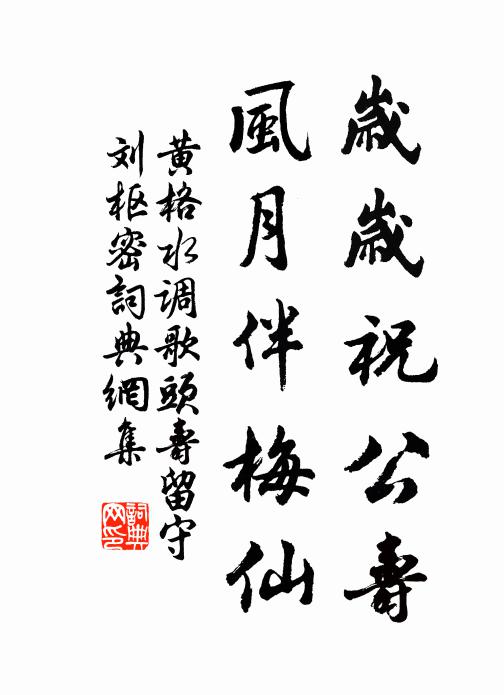 歲歲祝公壽
風月伴梅仙
黄格水调歌頭壽留守
刘枢密詞典網集
詞典网印